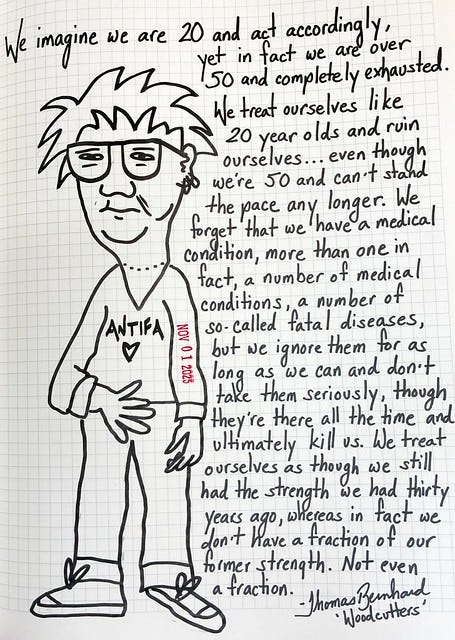 We imagine we are 20 and act accordingly,
yet in fact we are over
50 and completely exhausted.
We treat ourselves like
20 year olds and ruin
ourselves... even though
we're 50 and can't stand
the pace any longer. We
forget that we have a medical
condition, more than one in
fact, a number of medical
conditions, a number of
so-called fatal diseases,
but we ignore them for as
long as we can and don't
take them seriously, though
they're there all the time and
ultimately kill us. We treat
ourselves as though we still
had the strength we had thirty
years ago, whereas in fact we
don't have a fraction of our
former strength. Not even
a fraction.
-Thomas Bernhard
'Woodcutters'
ANTIFA
NOV 01 2025